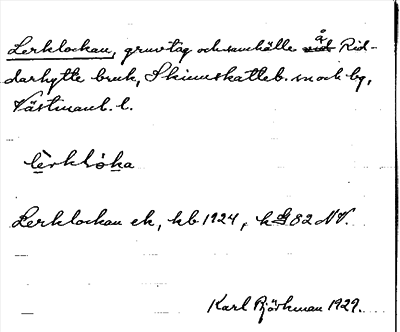 Lerklockan, gruvtåg och samhälle å Rid-
darhytte bruk, Skinnskatteb. sn och bg,
Västmanl. l.
lèrklòka
Lerklockan ek, kb 1924, k 82 NV.
Karl Björkman 1929.